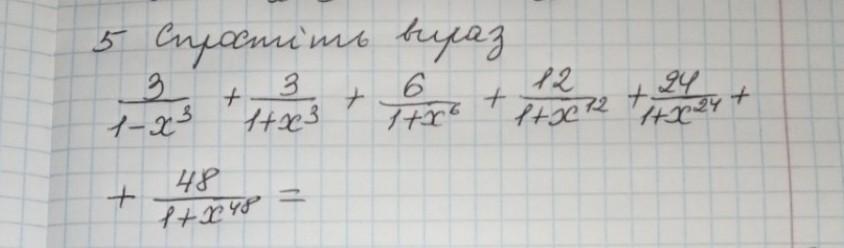 5 Спростіть вираз
3/(1-x³) + 3/(1+x³) + 6/(1+x⁶) + 12/(1+x¹²) + 24/(1+x²⁴) +
+ 48/(1+x⁴⁸) =